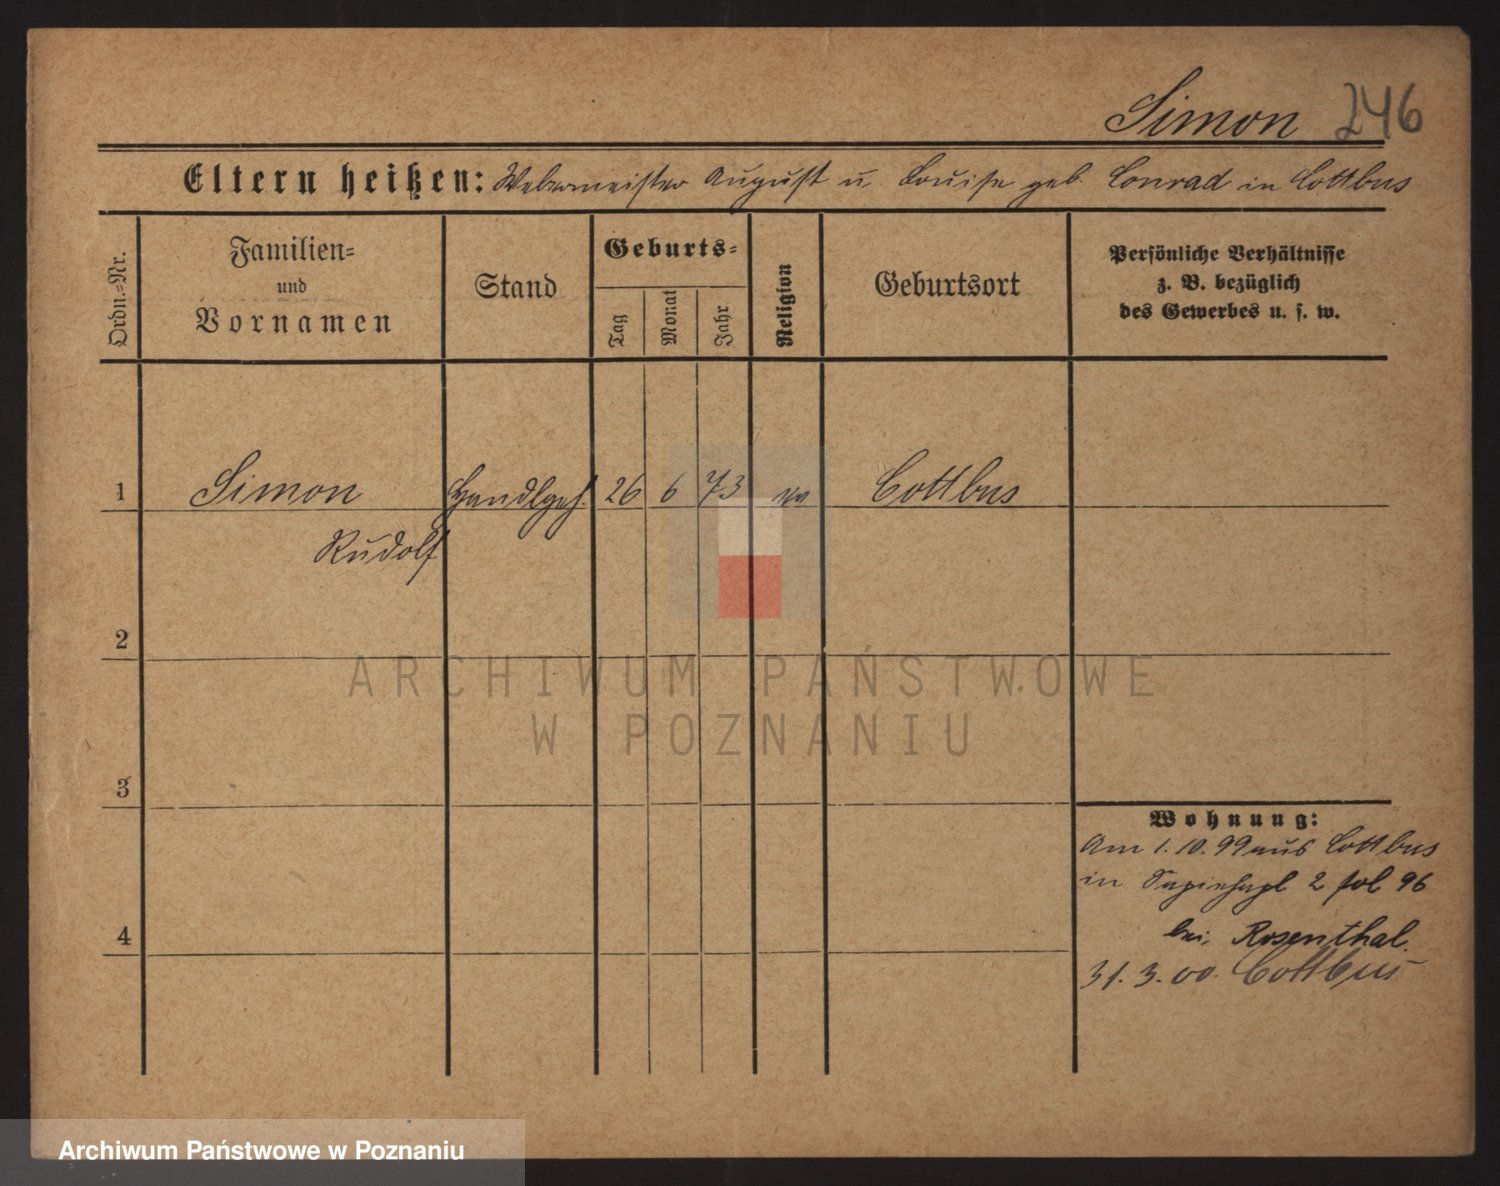 Simon 246
Eltern heißen: Webermeister August u. Louise geb. Conrad in Cottbus
Ordn.=Nr.
Familien=
und
Vornamen
Stand
Geburts=
Tag
Monat
Jahr
Religion
Geburtsort
Persönliche Verhältnisse
z. B. bezüglich
des Gewerbes u. s. w.
1 Simon Handlgeh. 26 6 73 Cottbus
Rudolf
2
ARCHIWUM PAŃSTWOWE
W POZNANIU
3
Wohnung:
Am 1. 10. 99 aus Cottbus
in 2 96
4
bei Rosenthal.
31. 3. 00. Cottbus
Archiwum Państwowe w Poznaniu